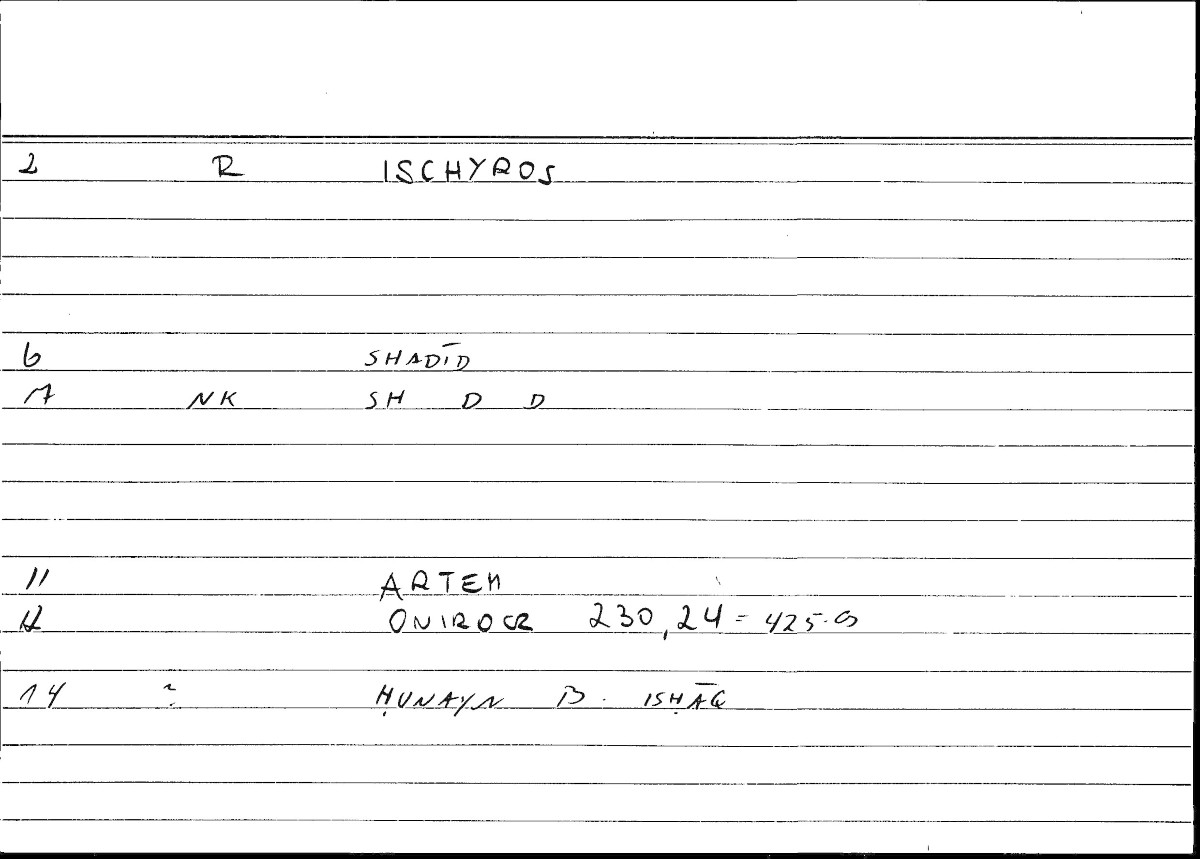 2 R ISCHYROS
6 SHADĪD
7 NK SH D D
11 ARTEM
12 ONIROCR 230,24 = 425.9
14 ? ḤUNAYN B. ISḤĀQ